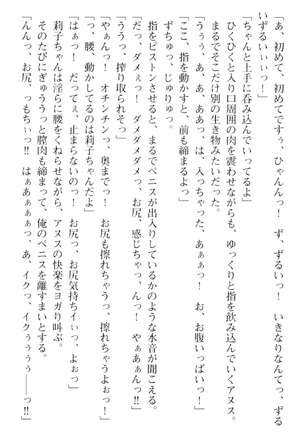 「あ、初めて、初めてですぅ、ひゃんんっ！　ず、ずるいっ！　いきなりなんてっ、ずる
いずるいぃぃっ！」
「ちゃんと上手に呑み込んでいってるよ」
ひくひくと入り口周囲の肉を震わせながらも、ゆっくりと指を飲み込んでいくアヌス。
まるでそこだけ別の生き物みたいだった。
「うぅぅ、ああ、ああっ、は、入っちゃった、あぁぁっ！　お、お腹いっぱいっ！」
「ここ、指を動かすと、前も締まるよっ」
ずちゅっ、じゅりゅっ。
指をピストンさせると、まるでペニスが出入りしているかのような水音が聞こえる。
「だっ、ダメぇっ！　ダメダメダメっ、お尻、感じちゃっ、んっ！　やぁあぁんっ！」
「うっ、搾り取られそっ」
「あぁ、んんっ！　オチンチンっ、奥までっ！　お尻も擦れちゃうっ、擦れちゃうよぉっ！」
「っ、腰、動かしてるのは莉子ちゃんだよ」
「はぁっ！　だってぇ、止まらないのっ！　お尻っ、お尻気持ちイィっ、よぉっ」
莉子ちゃんは淫らに腰をくねらせながら、アヌスの快楽をヨガり叫ぶ。
そのたびにぎゅううっと膣肉も締まって、俺のペニスを離すまいとする。
「んんっ、お尻、っもちぃっ!!　はぁあぁぁっ、あ、イクっ、イクぅぅぅ――っ!!」